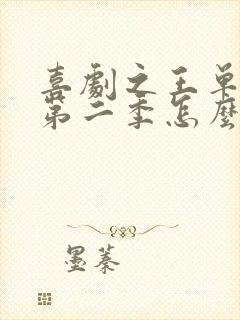 喜劇之王単
第二季怎麼
墨蓁